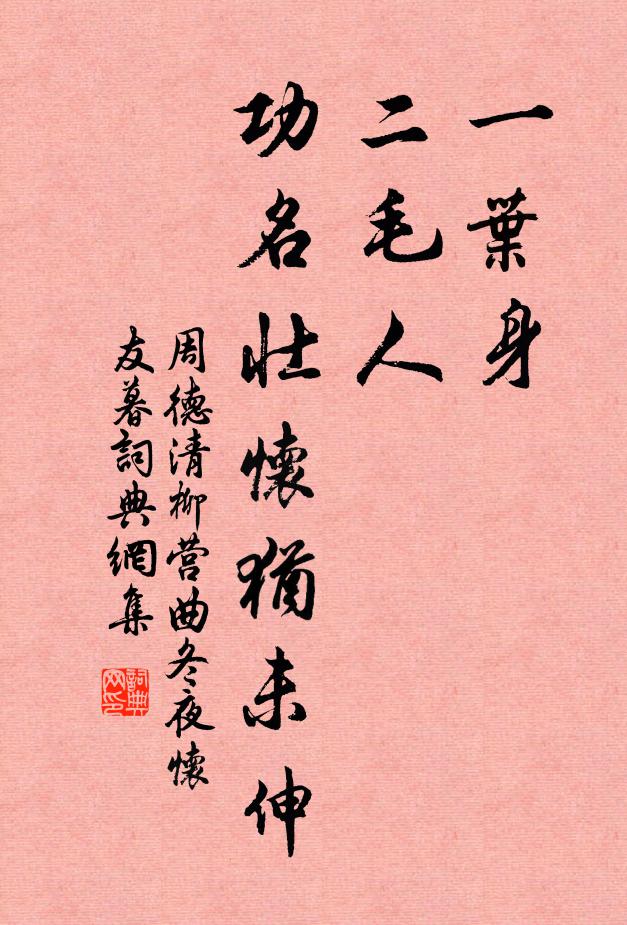 一葉身
二毛人
功名壯懷猶未伸
周德清柳营曲冬夜懷
友暮詞典網集
詞典
网印